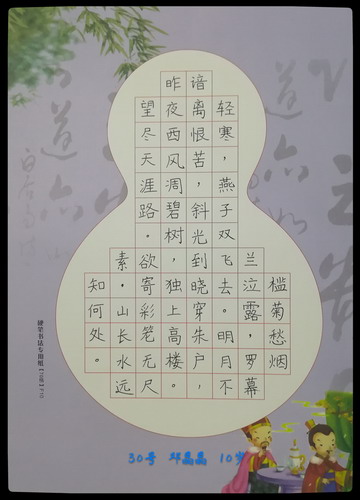 槛菊愁烟
兰泣露，罗幕
轻寒，燕子双飞去。明月不
谙离恨苦，斜光到晓穿朱户，
昨夜西风凋碧树，独上高楼。
望尽天涯路。欲寄彩笺无尺
素，山长水远
知何处。
硬笔书法专用纸
30号 邱晶晶 10岁